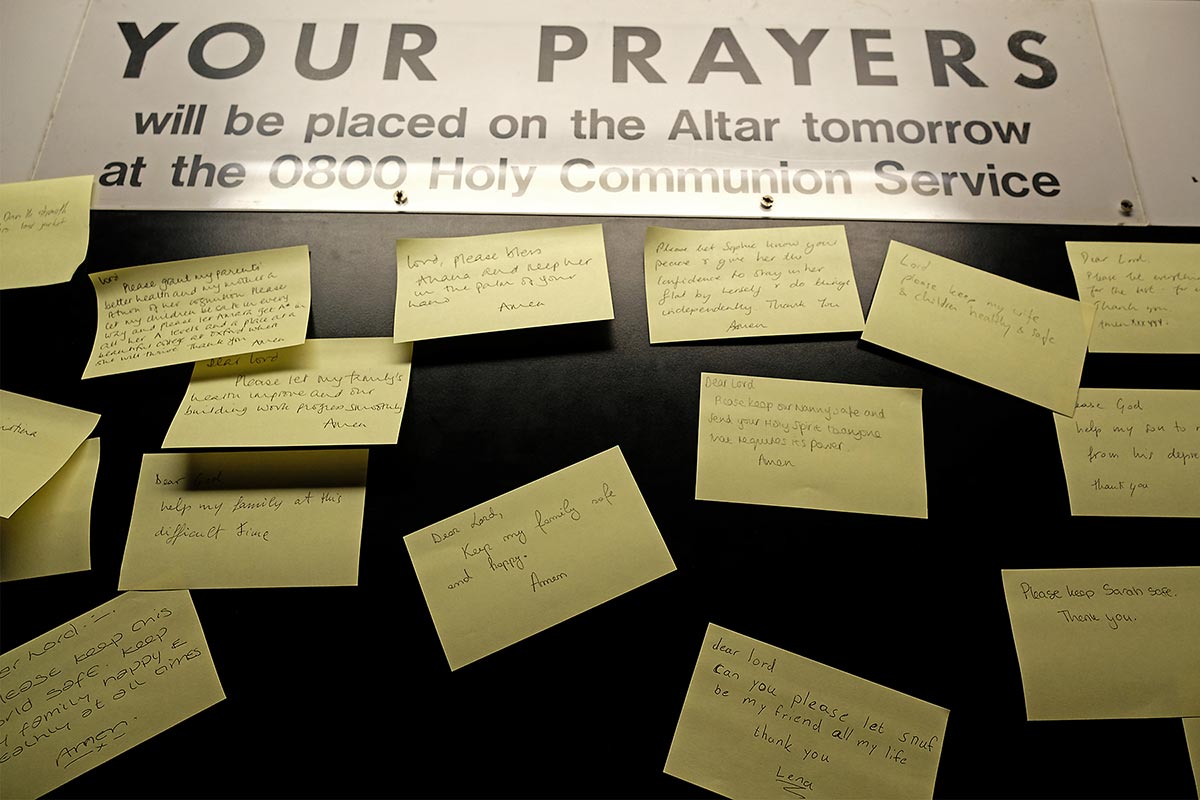 YOUR PRAYERS
will be placed on the Altar tomorrow
at the 0800 Holy Communion Service
Lord
Please grant my parents'
better health and my mother a
return of her cognition. Please
let my children be can in every
way and please let Amelia get
all her A levels and a place at a
beautiful college at Oxford where
she will thrive. Thank you Amen
Lord, please bless
and keep her
in the palm of your
hand
Amen
Please let Sophie know your
peace & give her the
confidence to stay in her
flat by herself & do things
independently. Thank You
Amen
Lord
please keep my wife
& children healthy & safe
Dear Lord.
Please let
for the best. for
Thank you.
Amen xxxyyy.
Dear Lord
Please let my family's
health improve and our
building work progress smoothly
Amen
Dear Lord
Please keep our Nanny safe and
send your Holy Spirit to anyone
that requires its power.
Amen
ease God
help my son to
from his depre
thank you
Dear God
help my family at this
difficult time
Dear Lord,
Keep my family safe
and happy.
Amen
Please keep Sarah safe.
Thank you.
ar Lord:-
lease keep this
orld safe. Keep
y family happy &
ealthy at all times
Amen.
x
dear lord
can you please let snuf
be my friend all my life
thank you
Lena